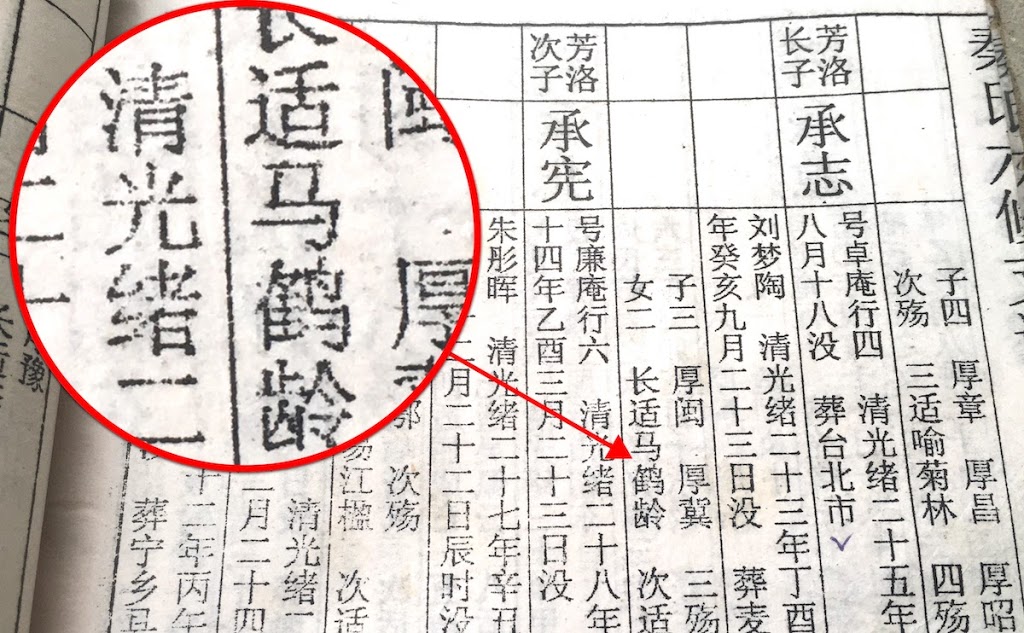 秦氏六修
芳洛
长子
承志
子四 厚章 厚昌 厚昭
次殇 三适喻菊林 四殇
号卓庵行四 清光绪二十五年
八月十八没 葬台北市
刘梦陶 清光绪二十三年丁酉
年癸亥九月二十三日没 葬麦
子三 厚闽 厚冀 三殇
女二 长适马鹤龄 次适
芳洛
次子
承宪
号廉庵行六 清光绪二十八年
十四年乙酉三月二十三日没
朱彤晖 清光绪二十七年辛丑
二月二十二日辰时没
次殇
江楹 次适
清光绪二
月二十四
十二年丙午
葬宁乡县
豫
闽 厚
长适马鹤龄
清光绪二